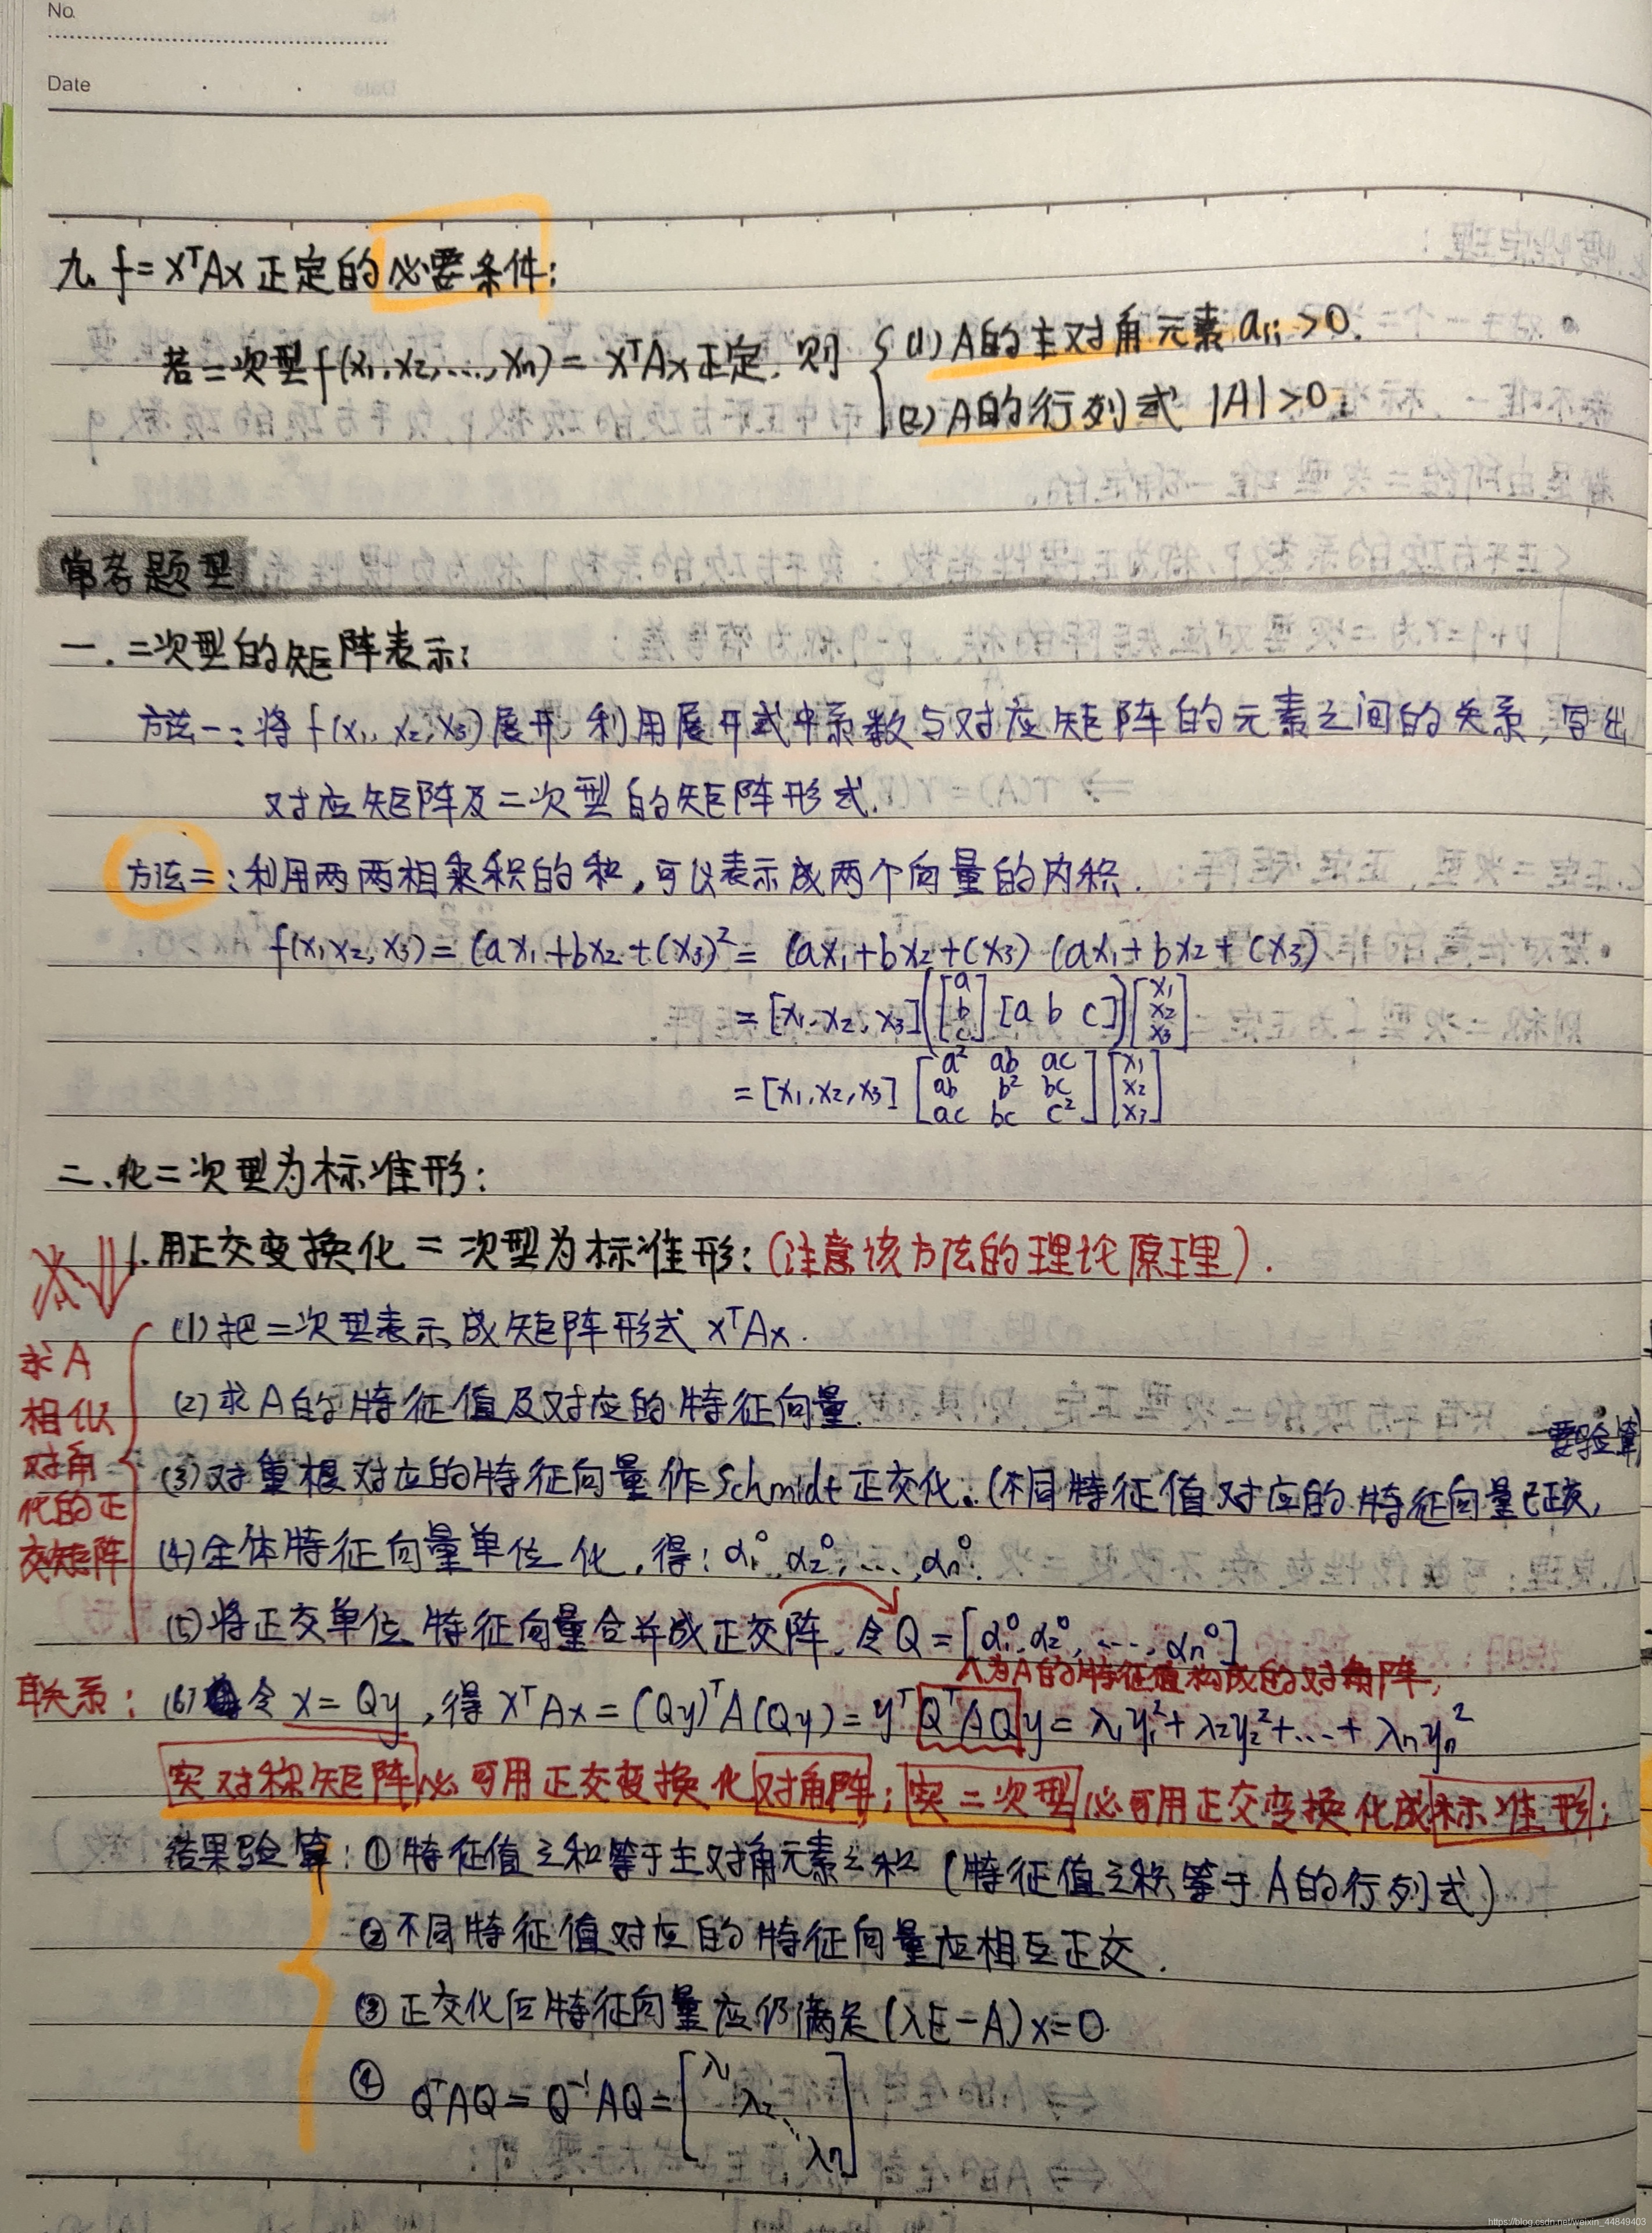 No.
Date
九. f=xᵀAx正定的必要条件:
若二次型f(x₁,x₂,...,xₙ)= xᵀAx正定, 则 { (1) A的主对角元素 aᵢᵢ>0.
(2) A的行列式 |A|>0;
常考题型
一. 二次型的矩阵表示:
方法一: 将 f(x₁, x₂, x₃)展开, 利用展开式中系数与对应矩阵的元素之间的关系, 写出
对应矩阵及二次型的矩阵形式.
方法二: 利用两两相乘积的和, 可以表示成两个向量的内积.
f(x₁,x₂,x₃)= (ax₁+bx₂+cx₃)²= (ax₁+bx₂+cx₃) (ax₁+bx₂+cx₃)
= [x₁,x₂,x₃] ([a b c] [a b c]) [x₁ x₂ x₃]
= [x₁,x₂,x₃] [a² ab ac
ab b² bc
ac bc c²] [x₁ x₂ x₃]
二、化二次型为标准形:
1. 用正交变换化二次型为标准形: (注意该方法的理论原理).
(1) 把二次型表示成矩阵形式 xᵀAx.
求A
相似
对角
化的正
交矩阵
(2) 求A的特征值及对应的特征向量.
要验算
(3) 对重根对应的特征向量作Schmidt正交化. (不同特征值对应的特征向量已正交,
(4) 全体特征向量单位化, 得: α₁⁰, α₂⁰, ..., αₙ⁰.
(5) 将正交单位特征向量合并成正交阵, 令Q=[α₁⁰,α₂⁰, ..., αₙ⁰]
Λ为A的特征值构成的对角阵,
联系: (6) 令 x=Qy, 得 xᵀAx=(Qy)ᵀA(Qy)=yᵀQᵀAQy=λ₁y₁²+λ₂y₂²+...+λₙyₙ²
实对称矩阵必可用正交变换化对角阵; 实二次型必可用正交变换化成标准形;
结果验算: ①特征值之和等于主对角元素之和 (特征值之积等于A的行列式)
②不同特征值对应的特征向量应相互正交.
③正交化后特征向量应仍满足(λE-A)x=0
④ QᵀAQ=Q⁻¹AQ=[λ₁ λ₂ ⋱ λₙ]
https://blog.csdn.net/weixin_44849403